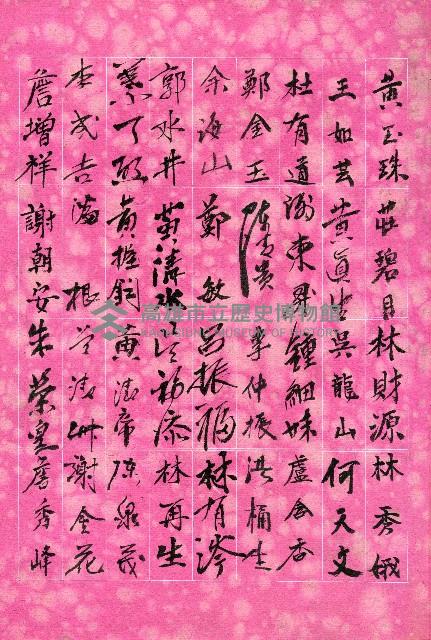 黃玉珠 莊碧月 林財源 林秀娥
王如芸 黃眞 吳龍山 何天文
杜有道 謝東昇 鍾細妹 盧金香
鄭金玉 陳 李仲振 洪桶生
余海山 鄭敏 呂振福 林有
郭水井 黃清水 初添 林再生
葉丁 黃 黃清帝 陳泉茂
李成吉 潘根 謝金花
詹增祥 謝朝安 朱榮皇 詹秀峰
高雄市立歷史博物館
KAOHSIUNG MUSEUM OF HISTORY